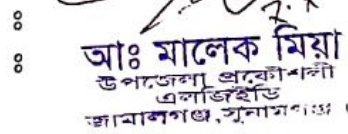 আঃ মালেক মিয়া
উপজেলা প্রকৌশলী
এলজিইডি
জামালগঞ্জ, সুনামগঞ্জ।